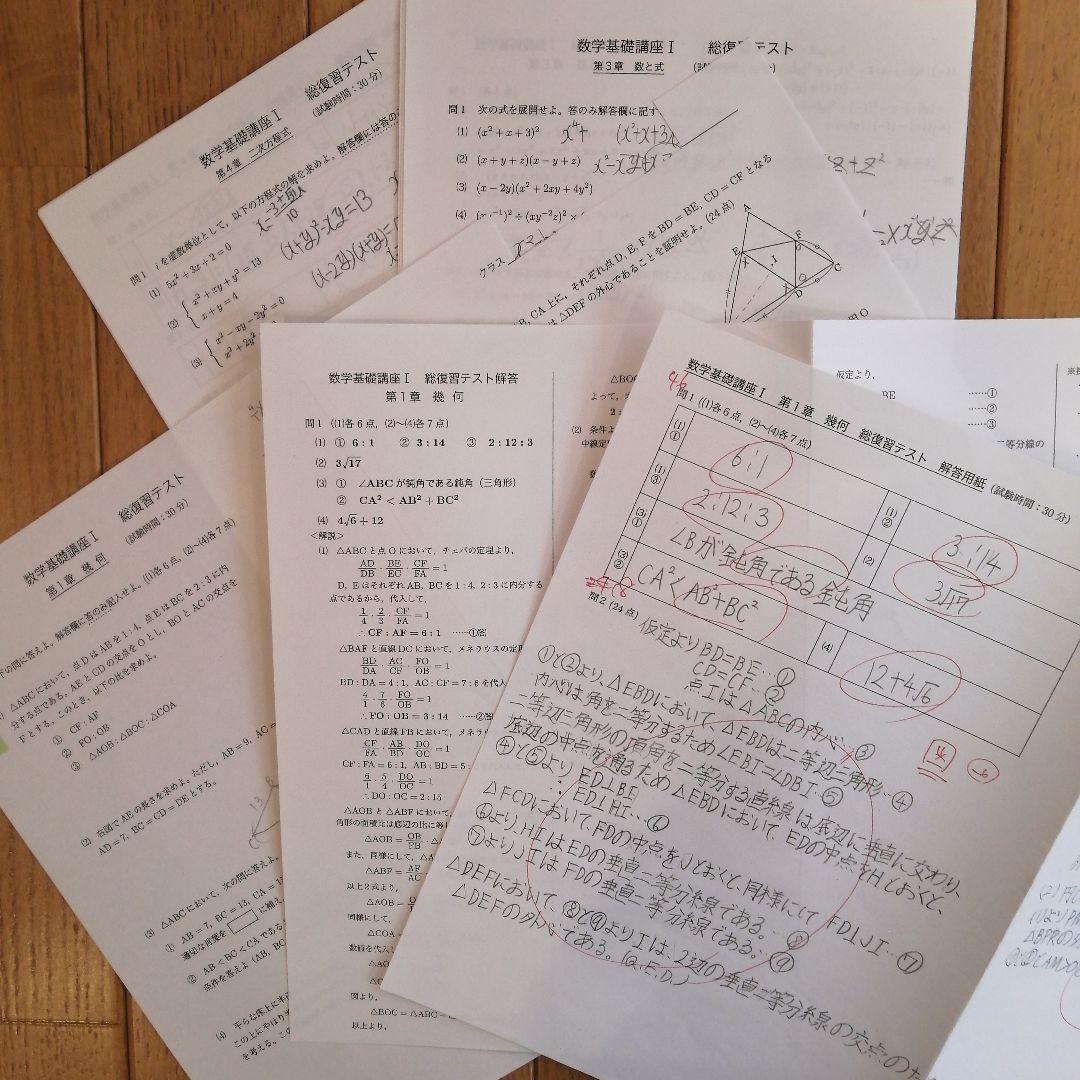 数学基礎講座Ⅰ 総復習テスト
第4章 二次方程式
(試験時間：30分)
問1 iを虚数単位として，以下の方程式の解を求めよ。解答欄には答の
(1) 5x²+3x+2=0
(2) { x²+xy+y²=13
x+y=4
(3) { x²−xy−2y²=0
x²+2y²
(x+y)²−xy=13
(x-2y)(x+y)=
数学基礎講座Ⅰ 総復習テスト
第3章 数と式
問1 次の式を展開せよ。答のみ解答欄に記す
(1) (x²+x+3)²
x⁴+
(2) (x+y+z)(x−y+z)
(3) (x−2y)(x²+2xy+4y²)
(4)
クラス
CA上に，それぞれ点D, E, FをBD=BE, CD=CFとなる
は△DEFの外心であることを証明せよ。(24点)
A
E
F
I
C
D
数学基礎講座Ⅰ 総復習テスト
第1章 幾何
(試験時間：30分)
下の問に答えよ。解答欄に答のみ記入せよ。((1)各6点，(2)〜(4)各7点)
△ABCにおいて，点DはABを1:4，点EはBCを2:3に内
分する点である。AEとCDの交点をOとし，BOとACの交点を
Fとする。このとき，以下の比を求めよ。
① CF:AF
② FO:OB
③ △AOB:△BOC:△COA
(2) 右図でAEの長さを求めよ。ただし，AB=9, AC=
AD=7, BC=CD=DEとする。
13
(3) △ABCにおいて，次の問に答えよ。
① AB=7, BC=13, CA=1
適切な言葉を□に補え。
② AB<BC<CAである
条件を答えよ (AB, BC
(4) 平らな床上に半
この上にやはり半
を考える。この
数学基礎講座Ⅰ 総復習テスト解答
第1章 幾何
問1 ((1)各6点，(2)〜(4)各7点)
(1) ① 6:1 ② 3:14 ③ 2:12:3
(2) 3√17
(3) ① ∠ABCが鈍角である鈍角（三角形）
② CA²<AB²+BC²
(4) 4√6+12
<解説>
(1) △ABCと点Oにおいて，チェバの定理より，
AD/DB・BE/EC・CF/FA=1
D, EはそれぞれAB, BCを1:4, 2:3に内分する
点であるから，代入して，
1/4・2/3・CF/FA=1
∴CF:AF=6:1 ……①答
△BAFと直線DCにおいて，メネラウスの定理
BD/DA・AC/CF・FO/OB=1
BD:DA=4:1, AC:CF=7:6を代入
4/1・7/6・FO/OB=1
∴FO:OB=3:14 ……②答
△CADと直線FBにおいて，メネラウ
CF/FA・AB/BD・DO/OC=1
CF:FA=6:1, AB:BD=5:
6/1・5/4・DO/OC=1
∴DO:OC=2:15
△AOBと△ABFにおいて，
角形の面積比は底辺の比に等し
△AOB=OB/FB・△
また，同様にして，△A
△ABF=AF/AC
以上2式より，
△AOB=
同様にして，
△COA
数値を代入し
△AO
図より，
△BOC=△ABC−
以上より，
△BOC
よって，
(2) 条件よ
中線定
数学基礎講座Ⅰ 第1章 幾何 総復習テスト 解答用紙 (試験時間：30分)
46
問1 ((1)各6点，(2)〜(4)各7点)
(1)① 6:1
(1)② 3:14
(1)③ 2:12:3
(2) 3√17
(3)① ∠Bが鈍角である鈍角
(3)② CA²<AB²+BC²
(4) 12+4√6
問2 (24点)
-6
仮定よりBD=BE…①
CD=CF…②
点Iは△ABCの内心…③
①と②より、△EBDにおいて、△EBDは二等辺三角形…④
内心は角を二等分するため∠EBI=∠DBI…⑤
二等辺三角形の頂角を二等分する直線は、底辺に垂直に交わり、
底辺の中点を通るため△EBDにおいて、EDの中点をHとおくと、
④と⑤より、ED⊥BI
∴ED⊥HI…⑥
△FCDにおいて、FDの中点をJとおくと、同様にして FD⊥JI…⑦
⑥より、HIはEDの垂直二等分線である。…⑧
⑦より、JIはFDの垂直二等分線である。…⑨
△DEFにおいて、⑧と⑨よりIは、2辺の垂直二等分線の交点のた
△DEFの外心である。(Q.E.D.)
仮定より，
BE
……①
……②
……③
二等分線の
(1)より
△BPRの